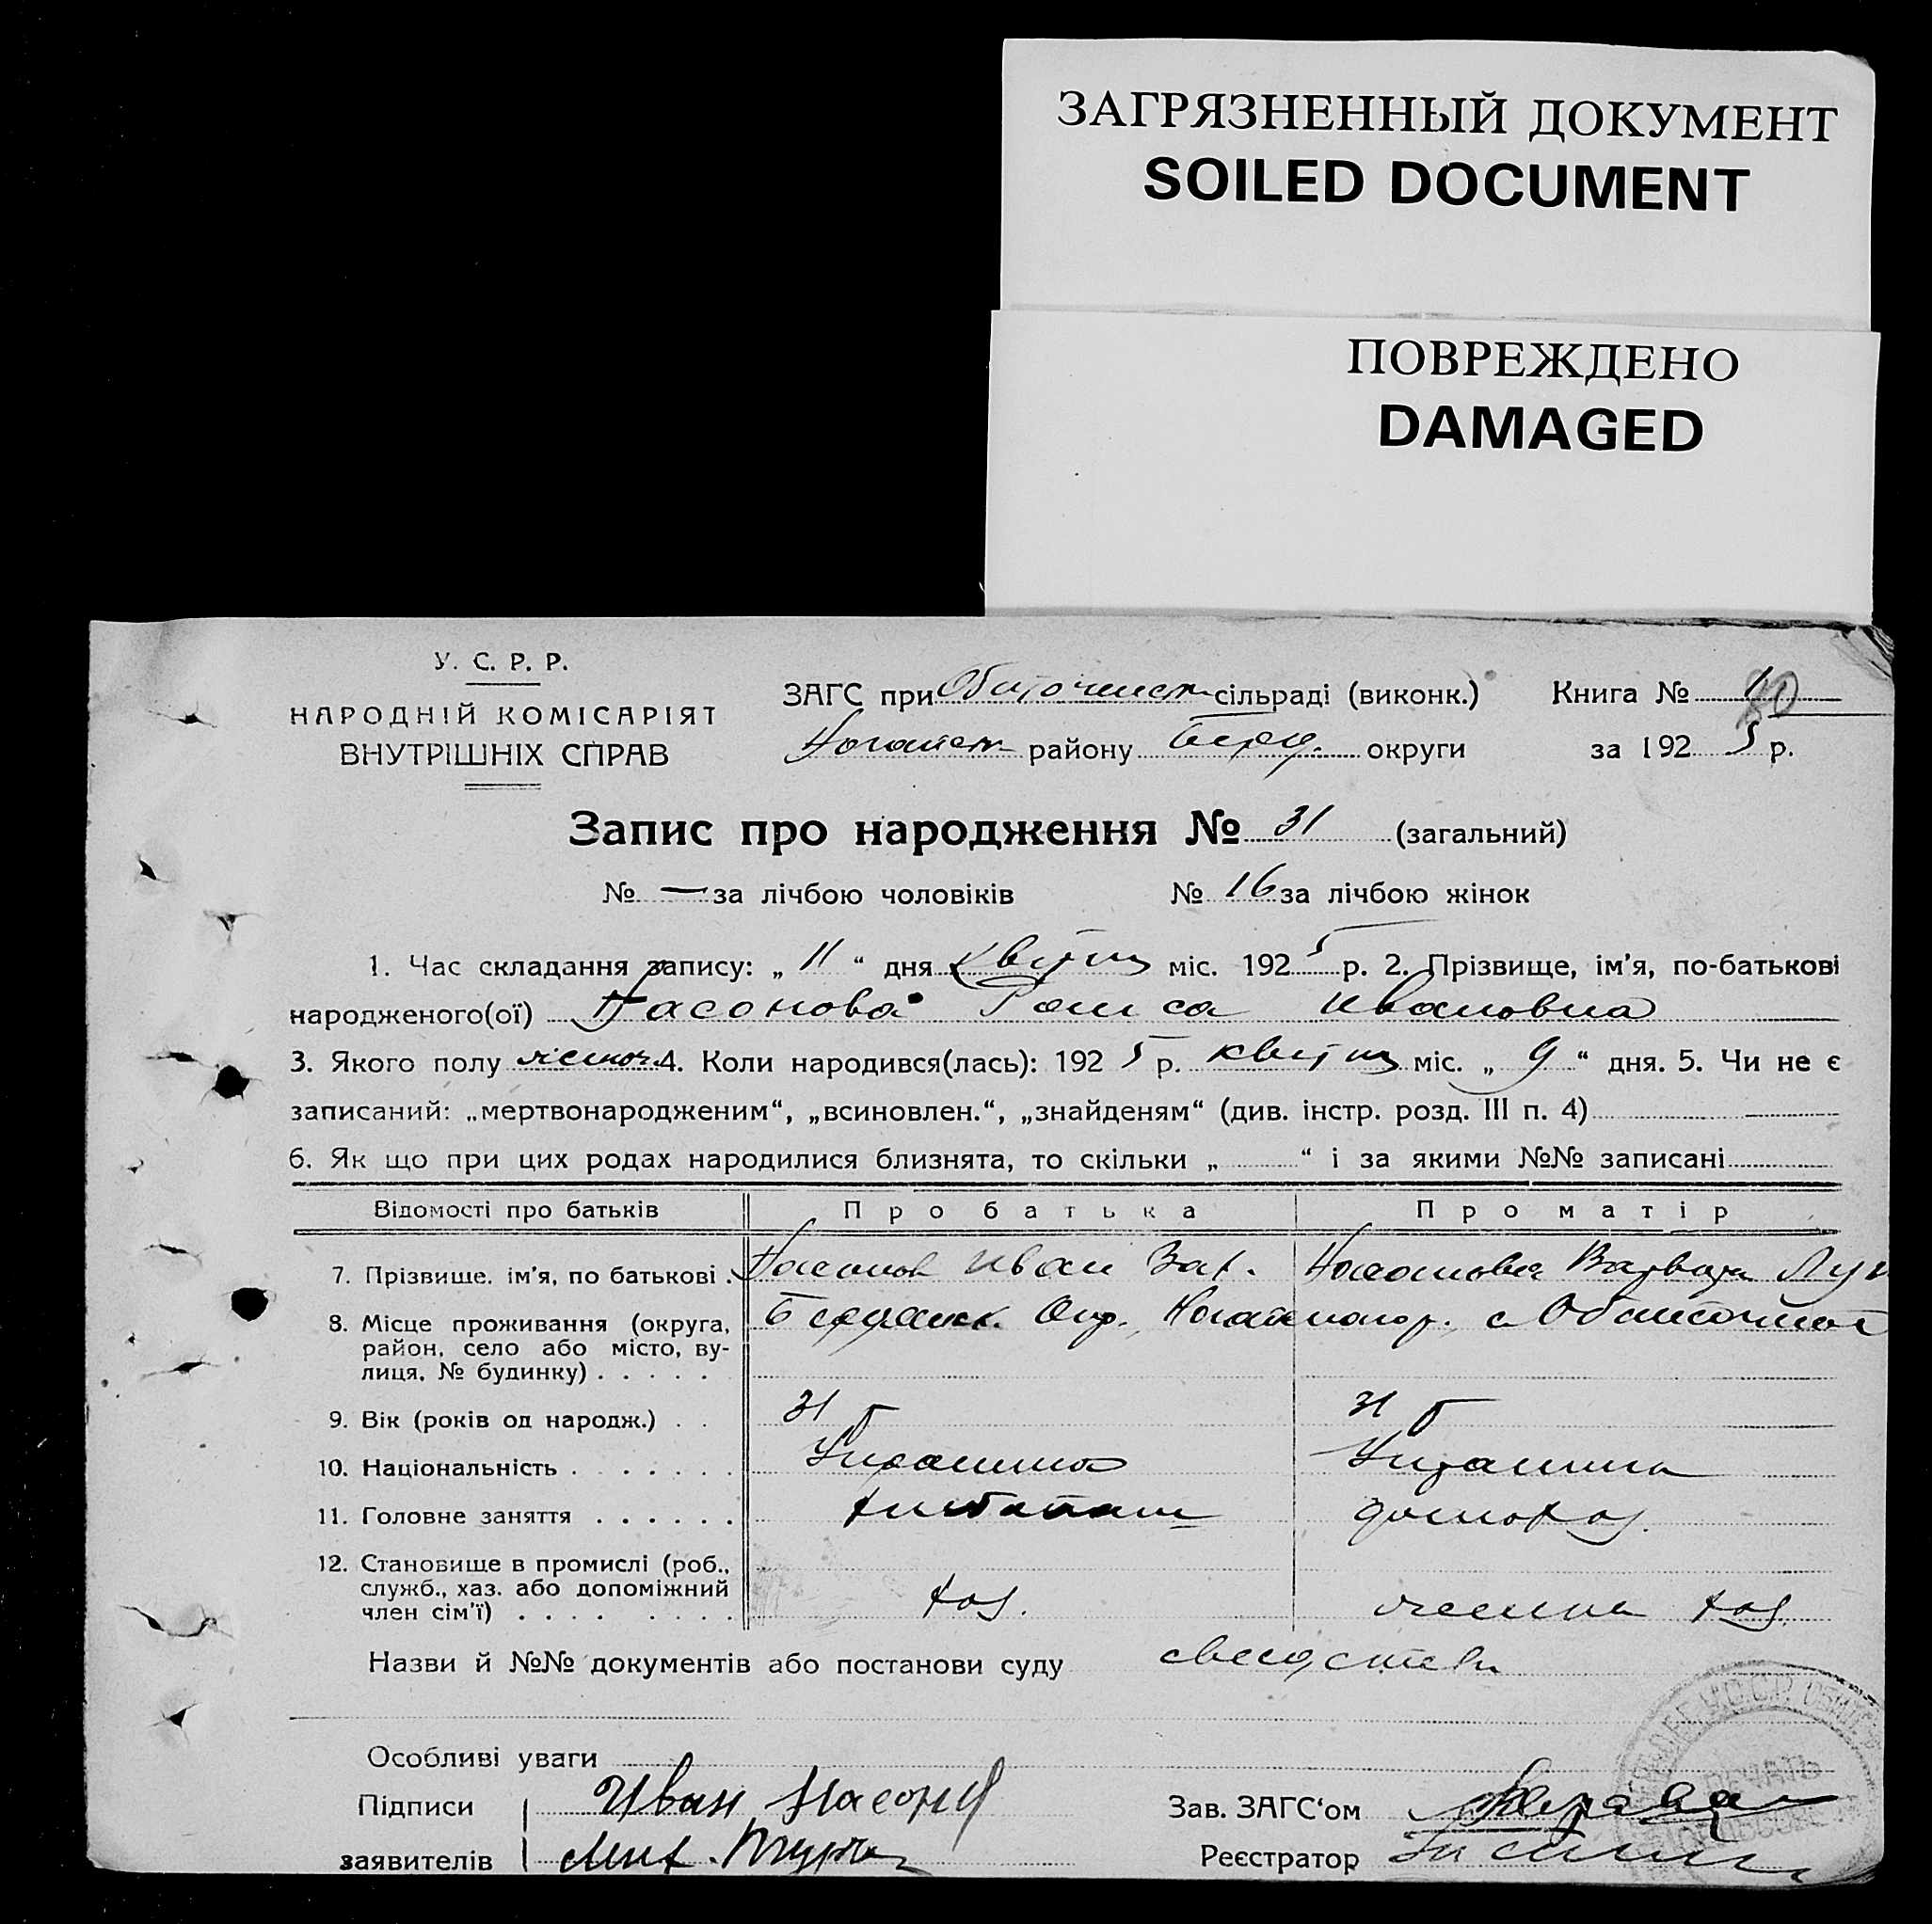 ЗАГРЯЗНЕННЫЙ ДОКУМЕНТ
SOILED DOCUMENT
ПОВРЕЖДЕНО
DAMAGED
У. С. Р. Р.
НАРОДНІЙ КОМІСАРІЯТ
ВНУТРІШНІХ СПРАВ
ЗАГС при сільраді (виконк.) Книга №
району Берд. округи за 192 5 р.
Запис про народження № 31 (загальний)
№ — за лічбою чоловіків № 16 за лічбою жінок
1. Час складання запису: „ 11 “ дня квітня міс. 192 5 р. 2. Прізвище, ім’я, по-батькові
народженого(ої) Насонова Раиса Ивановна
3. Якого полу жіноч. 4. Коли народився(лась): 192 5 р. квітня міс. „ 9 “ дня. 5. Чи не є
записаний: „мертвонародженим“, „всиновлен.“, „знайденям“ (див. інстр. розд. III п. 4)
6. Як що при цих родах народилися близнята, то скільки „ “ і за якими №№ записані
Відомості про батьків Про батька Про матір
7. Прізвище, ім’я, по батькові . Насонов Иван Зах. Насонова Варвара Лук
8. Місце проживання (округа,
район, село або місто, ву-
лиця, № будинку) . . . . .
9. Вік (років од народж.) . . 31 р 31 р
10. Національність . . . . . . .
11. Головне заняття . . . . . . домохоз.
12. Становище в промислі (роб.,
служб., хаз. або допоміжний
член сім’ї) . . . . . . . . хоз. хоз.
Назви й №№ документів або постанови суду
Особливі уваги
Підписи Иван Насонов Зав. ЗАГС‘ом
заявителів Мих. Реєстратор
ПЕЧАТЬ